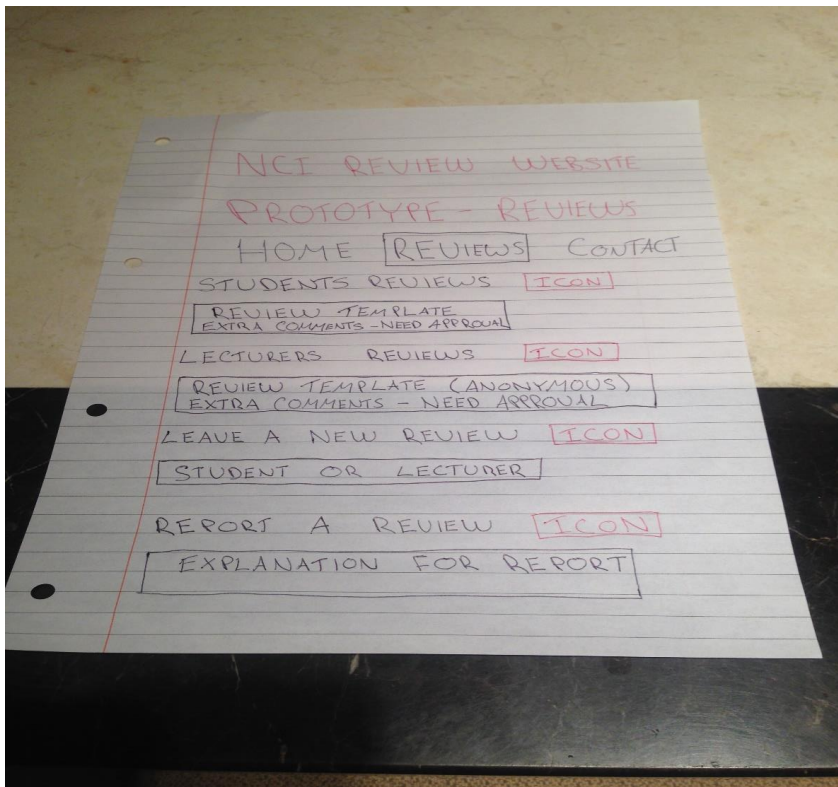 NCI REVIEW WEBSITE
PROTOTYPE - REVIEWS
HOME REVIEWS CONTACT
STUDENTS REVIEWS ICON
REVIEW TEMPLATE
EXTRA COMMENTS - NEED APPROVAL
LECTURERS REVIEWS ICON
REVIEW TEMPLATE (ANONYMOUS)
EXTRA COMMENTS - NEED APPROVAL
LEAVE A NEW REVIEW ICON
STUDENT OR LECTURER
REPORT A REVIEW ICON
EXPLANATION FOR REPORT